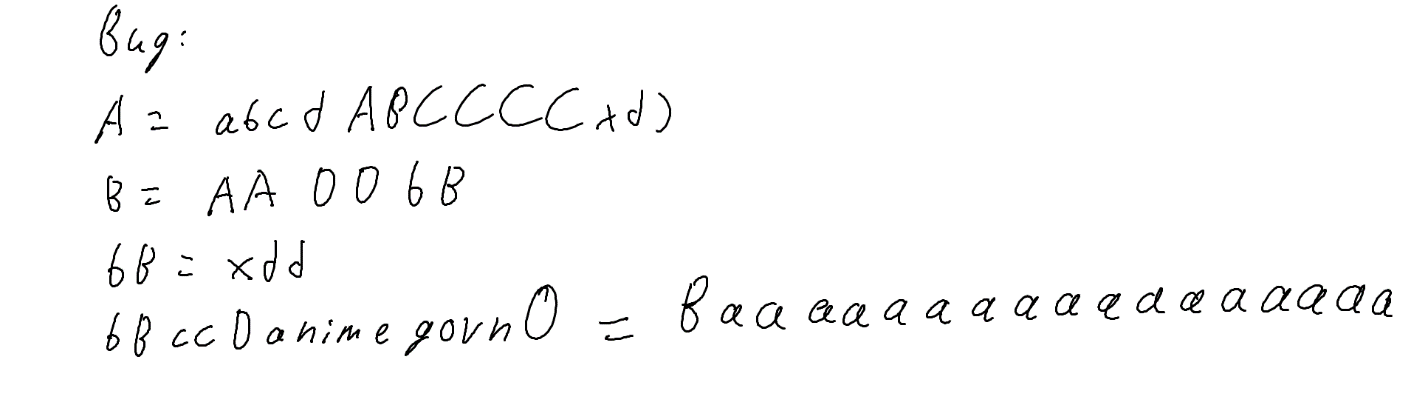 Вид:
A = abcd ABCCCCxd)
B = AA DD bB
bB = xdd
bBccDanimegovnO = Baaaaaaaaaaaaaaaa